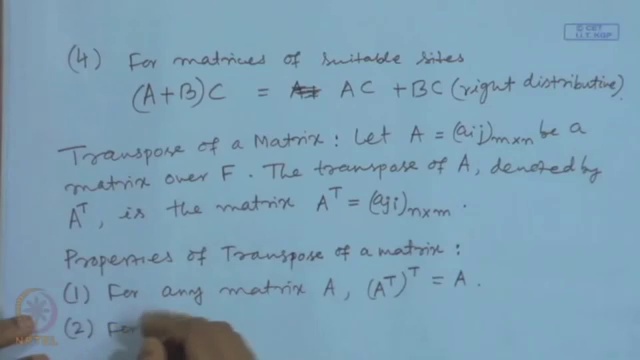 © CET
I.I.T. KGP
(4) For matrices of suitable sites
(A+B)C = AC + BC (right distributive)
Transpose of a Matrix: Let A = (aij)m×n be a
matrix over F. The transpose of A, denoted by
A^T, is the matrix A^T = (aji)n×m.
Properties of Transpose of a matrix:
(1) For any matrix A, (A^T)^T = A.
(2) For
NPTEL